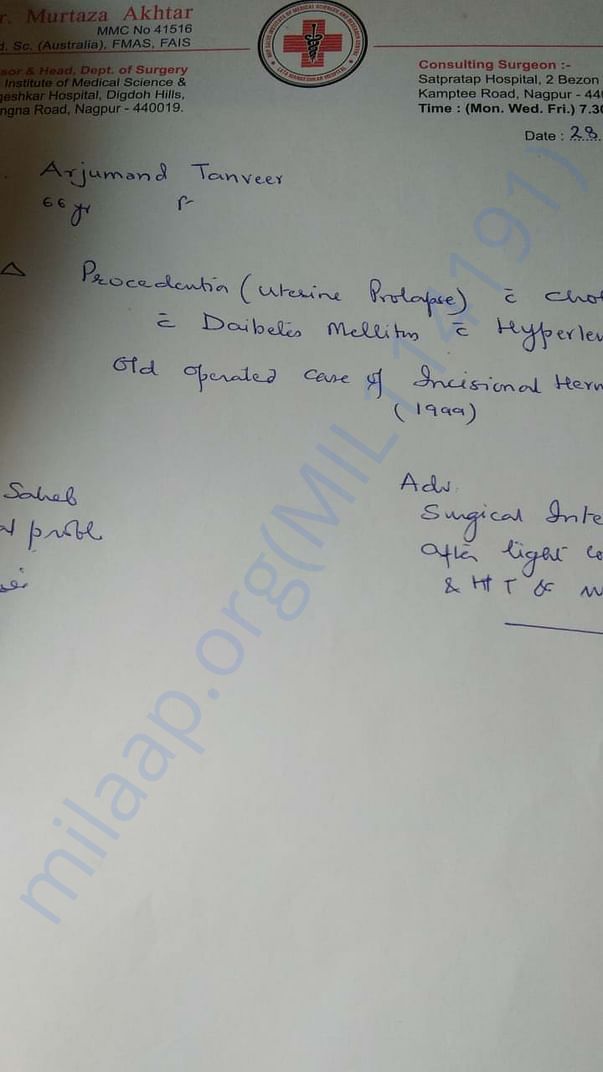 r. Murtaza Akhtar
MMC No 41516
d. Sc. (Australia), FMAS, FAIS
sor & Head, Dept. of Surgery
Institute of Medical Science &
geshkar Hospital, Digdoh Hills,
ngna Road, Nagpur - 440019.
Consulting Surgeon :-
Satpratap Hospital, 2 Bezon
Kamptee Road, Nagpur - 44
Time : (Mon. Wed. Fri.) 7.3
Date : 28
Arjumand Tanveer
66 yr F
Δ Procedentia (Uterine Prolapse) c̄ Cho
c̄ Daibetis Mellitus c̄ Hyperte
Old operated case of Incisional Hern
(1999)
Saheb
Adv.
Surgical Inte
After tight co
& HT
milaap.org(MIL114191)